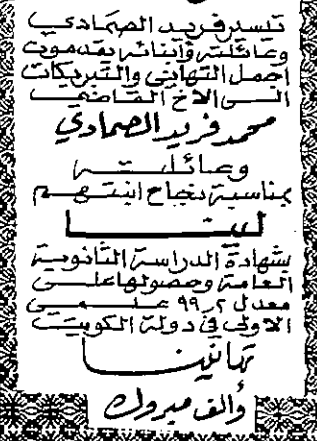 تيسير فريد الصمادي
وعائلته وأبنائه يقدمون
اجمل التهاني والتبريكات
الى الاخ القاضي
محمد فريد الصمادي
وعائلته
بمناسبة نجاح ابنتهم
لينا
بشهادة الدراسة الثانوية
العامة وحصولها على
معدل ٩٩٫٢ علمي
الاولى في دولة الكويت
تهانينا
وألف مبروك